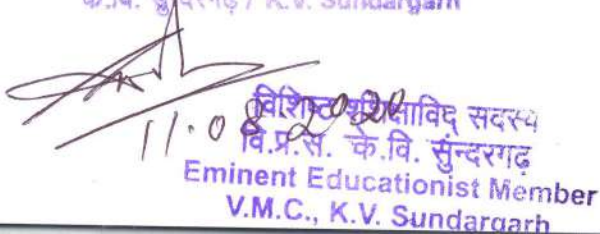 के.वि. सुंदरगढ़ / K.V. Sundargarh
11.08.2020
विशिष्ट शिक्षाविद् सदस्य
वि.प्र.स. के.वि. सुंन्दरगढ़
Eminent Educationist Member
V.M.C., K.V. Sundargarh